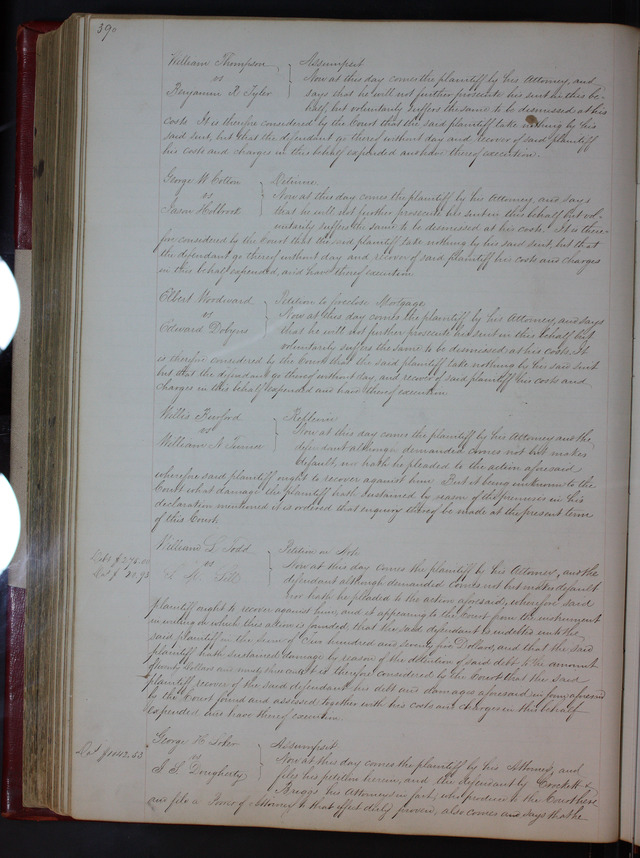 390
William Thompson } Assumpsit
vs Now at this day comes the plaintiff by his Attorney, and
Benjamin R Tyler says that he will not further prosecute his suit in this be-
half, but voluntarily suffers the same to be dismissed at his
costs. It is therefore considered by the Court that the said plaintiff take nothing by his
said suit, but that the defendant go thereof without day and recover of said plaintiff
his costs and charges in this behalf expended and have thereof execution.
George W Cotton } Detinue
vs Now at this day comes the plaintiff by his Attorney, and says
Jason Holbrook that he will not further prosecute his suit in this behalf but vol-
untarily suffers the same to be dismissed at his costs. It is there-
fore considered by the Court that the said plaintiff take nothing by his said suit, but that
the defendant go thereof without day and recover of said plaintiff his costs and charges
in this behalf expended, and have thereof execution
Elbert Woodward } Petition to foreclose Mortgage
vs Now at this day comes the plaintiff by his Attorney, and says
Edward Dobyns that he will not further prosecute his suit in this behalf but
voluntarily suffers the same to be dismissed at his costs. It
is therefore considered by the Court that the said plaintiff take nothing by his said suit
but that the defendant go thereof without day, and recover of said plaintiff his costs and
charges in this behalf expended and have thereof execution
Willis Buford }
vs Now at this day comes the plaintiff by his Attorney and the
William N defendant although demanded comes not but makes
default, nor hath he pleaded to the action aforesaid
wherefore said plaintiff ought to recover against him. But it being unknown to the
Court what damage the plaintiff hath sustained by reason of the premises in his
declaration mentioned it is ordered that inquiry thereof be made at the present term
of this Court.
William L Todd } Petition on Note
Debt $276.00 vs Now at this day comes the plaintiff by his Attorney, and the
defendant although demanded comes not but makes default
nor hath he pleaded to the action aforesaid, wherefore said
plaintiff ought to recover against him, and it appearing to the Court from the instrument
in writing on which this action is founded, that the said defendant is indebted unto the
said plaintiff in the sum of Two hundred and seventy six Dollars, and that the said
plaintiff hath sustained damage by reason of the detention of said debt to the amount
Dollars and ninety three cents it is therefore considered by the Court that the said
plaintiff recover of the said defendant his debt and damages aforesaid in form aforesaid
by the Court found and assessed together with his costs and charges in this behalf
expended and have thereof execution.
George H } Assumpsit
vs Now at this day comes the plaintiff by his Attorney, and
J. S. Dougherty files his petition herein, and the defendant by Crockett &
Briggs his Attorneys in fact, who produce to the Court here
and file a Power of Attorney to that effect duly proven, also comes and says that he